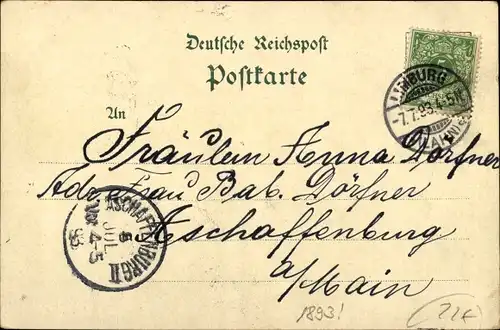 Deutsche Reichspost
Postkarte
LIMBURG
-7.7.93.4-5N
(LAHN)
An
Fräulein Anna Dörfner
Adr. Frau Bab. Dörfner
Aschaffenburg
a/Main
ASCHAFFENBURG II
8
JUL.
4-5
93
1893!
22€